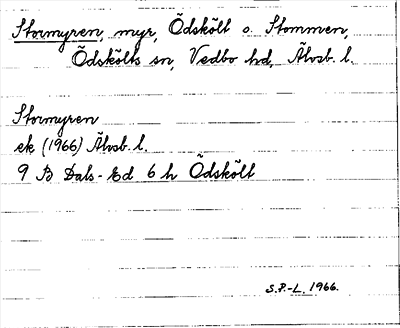 Stormyren, myr, Ödskölt o. Stommen,
Ödskölts sn, Vedbo hd, Älvsb. l.
Stormyren
ek (1966) Älvsb. l.
9 B Dals-Ed 6 h Ödskölt
S.P.-L. 1966.